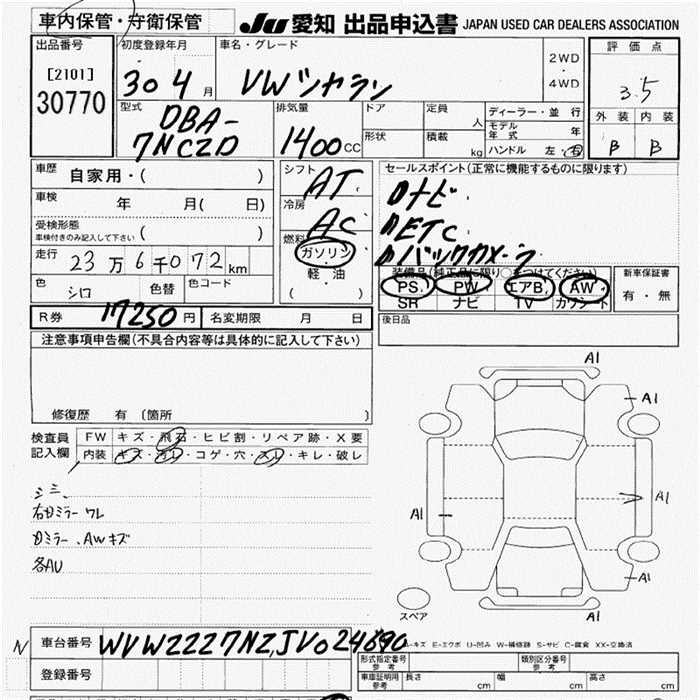 車内保管・守衛保管
JU 愛知 出品申込書 JAPAN USED CAR DEALERS ASSOCIATION
出品番号
[2101]
30770
初度登録年月
30 4 月
車名・グレード
VW シャラン
2WD
・
4WD
評価点
3.5
外装 内装
B B
型式
DBA-
7NCZD
排気量
1400 cc
ドア
形状
定員 人
積載 kg
ディーラー・並行
モデル年式 年
ハンドル 左・右
車歴 自家用・( )
車検 年 月( 日)
受検形態
車検付きのみ記入して下さい ( )
走行 23万6千072km
色 シロ 色替 色コード
シフト AT
冷房 AC
燃料
ガソリン
・
軽・油
( )
セールスポイント(正常に機能するものに限ります)
ナビ
ETC
バックカメラ
装備品(純正品に限り○をつけてください)
PS PW エアB AW
SR ナビ TV カワシート
新車保証書
有・無
R券 17250円 名変期限 月 日
後日品
注意事項申告欄(不具合内容等は具体的に記入して下さい)
修復歴 有 〔箇所 〕
検査員記入欄
FW キズ・飛石・ヒビ割・リペア跡・X要
内装 キズ・ヨゴレ・コゲ・穴・スレ・キレ・破レ
シミ、
右Dミラー ワレ
Dミラー、AWキズ
各AU
A1
A1
A1
A1
A1
A1
スペア
車台番号 WVWZZZ7NZJV024690
A-キズ E-エクボ U-凹み W-補修跡 S-サビ C-腐食 XX-交換済
N
登録番号
形式指定番号 参考
類別区分番号 参考
車庫証明用 参考
長さ cm 幅 cm 高さ cm